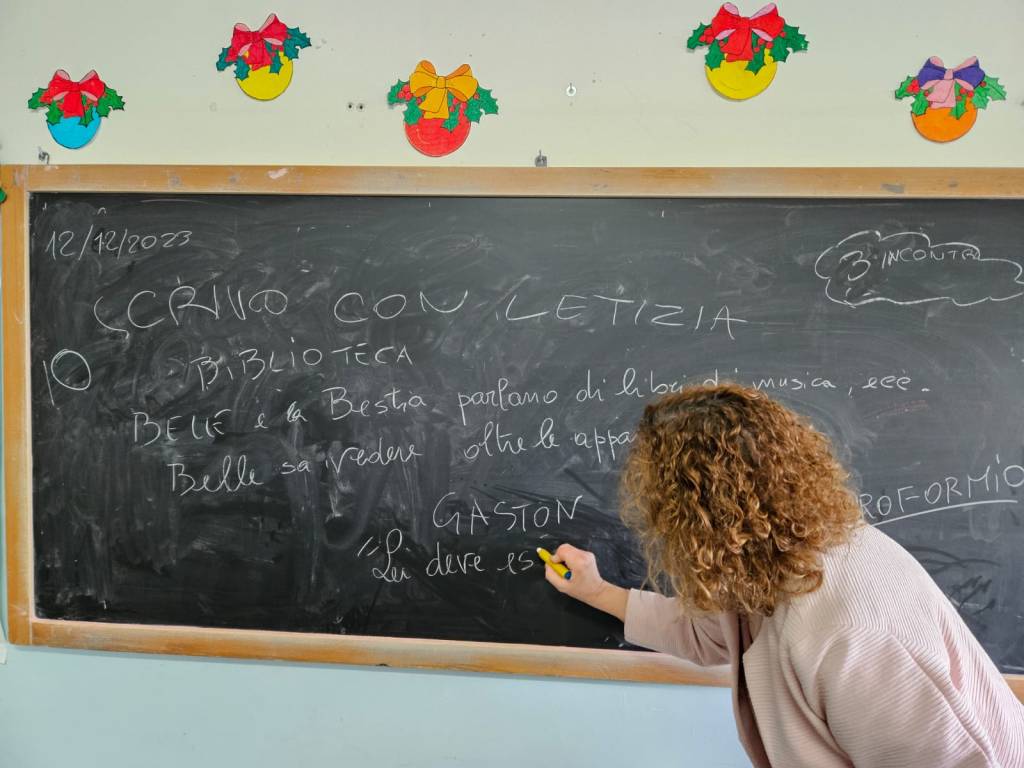 12/12/2023
3° INCONTRO
SCRIVO CON LETIZIA
BIBLIOTECA
BELLE e la Bestia parlano di libri di musica, ecc.
Belle sa vedere oltre le appa
ROFORMIO
GASTON
"Lei deve es